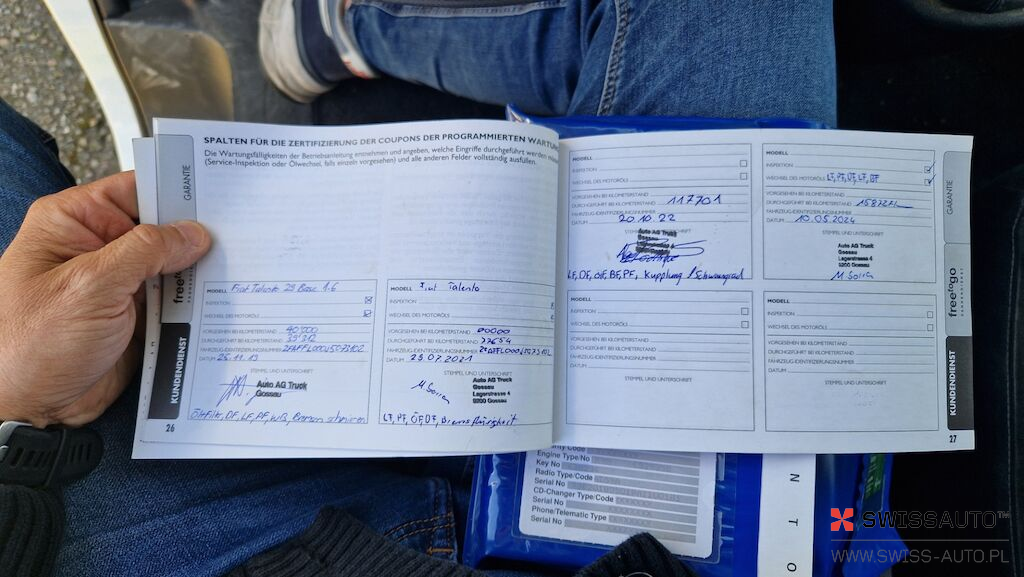 SPALTEN FÜR DIE ZERTIFIZIERUNG DER COUPONS DER PROGRAMMIERTEN
Die Wartungsfälligkeiten der Betriebsanleitung entnehmen und angeben, welche Eingriffe durchgeführt werden
(Service-Inspektion oder Ölwechsel, falls einzeln vorgesehen) und alle anderen Felder vollständig ausfüllen.
GARANTIE
freetogo
KUNDENDIENST
MODELL Fiat Talento 29 Base 1.6
INSPEKTION
WECHSEL DES MOTORÖLS
VORGESEHEN BEI KILOMETERSTAND 40'000
DURCHGEFÜHRT BEI KILOMETERSTAND 39'312
FAHRZEUG-IDENTIFIZIERUNGSNUMMER
DATUM 26.11.19
STEMPEL UND UNTERSCHRIFT
Auto AG Truck
Gossau
26
MODELL Fiat Talento
INSPEKTION
WECHSEL DES MOTORÖLS
VORGESEHEN BEI KILOMETERSTAND
DURCHGEFÜHRT BEI KILOMETERSTAND 77654
FAHRZEUG-IDENTIFIZIERUNGSNUMMER
DATUM 23.07.2021
STEMPEL UND UNTERSCHRIFT
Auto AG Truck
Gossau
Lagerstrasse 4
9200 Gossau
LF, PF, ÖF, DF, Bremsflüssigkeit
MODELL
INSPEKTION
WECHSEL DES MOTORÖLS
VORGESEHEN BEI KILOMETERSTAND
DURCHGEFÜHRT BEI KILOMETERSTAND 117701
FAHRZEUG-IDENTIFIZIERUNGSNUMMER
DATUM 20.10.22
STEMPEL UND UNTERSCHRIFT
Auto AG Truck
Gossau
LF, DF, ÖlF, BF, PF, Kupplung / Schwungrad
MODELL
INSPEKTION
WECHSEL DES MOTORÖLS LF, PF, ÜF, LF, BF
VORGESEHEN BEI KILOMETERSTAND
DURCHGEFÜHRT BEI KILOMETERSTAND
FAHRZEUG-IDENTIFIZIERUNGSNUMMER
DATUM 10.05.2024
STEMPEL UND UNTERSCHRIFT
Auto AG Truck
Gossau
Lagerstrasse 4
9200 Gossau
MODELL
INSPEKTION
WECHSEL DES MOTORÖLS
VORGESEHEN BEI KILOMETERSTAND
DURCHGEFÜHRT BEI KILOMETERSTAND
FAHRZEUG-IDENTIFIZIERUNGSNUMMER
DATUM
STEMPEL UND UNTERSCHRIFT
MODELL
INSPEKTION
WECHSEL DES MOTORÖLS
VORGESEHEN BEI KILOMETERSTAND
DURCHGEFÜHRT BEI KILOMETERSTAND
FAHRZEUG-IDENTIFIZIERUNGSNUMMER
DATUM
STEMPEL UND UNTERSCHRIFT
GARANTIE
freetogo
KUNDENDIENST
27
Code
Engine Type/No
Key No
Radio Type/Code
Serial No
CD-Changer Type/Code
Serial No
Phone/Telematic Type
Serial No
N T O
SWISSAUTO™
WWW.SWISS-AUTO.PL